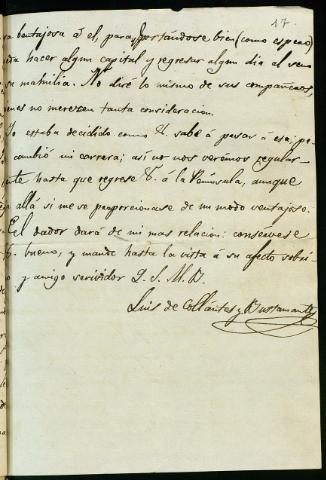 17.
ra ventajosa á él, para q. portándose bien (como espero)
da hacer algun capital y regresar algun dia al seno
su mathilia. No diré lo mismo de sus compañeros,
nes no merescen tanta consideracion.
Yo estaba decidido como V. sabe á pasar á esa; pe
cambió mi carrera; asi no nos verémos regular
nte hasta que regrese V. á la Península, aunque
allá si me se proporcionase de un modo ventajoso.
El dador dará de mi mas relacion: conservese
V. bueno, y mande hasta la vista á su afecto sobri-
o y amigo servidor Q. S. M. B.
Luis de Collántes y Bustamante